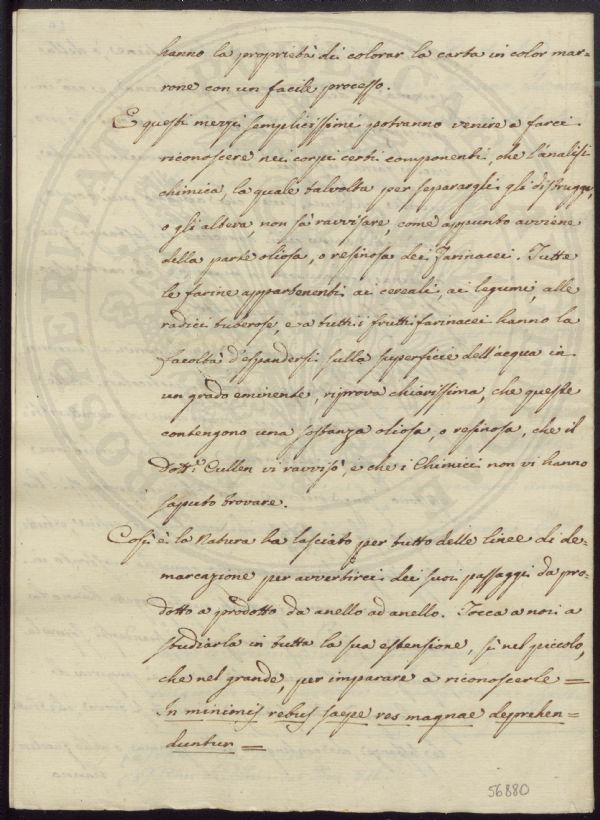 hanno la proprietà di colorar la carta in color mar=
rone con un facile processo.
E questi mezzi semplicissimi potranno venire a farci
riconoscere nei corpi certi componenti, che l'analisi
chimica, la quale talvolta per separargli gli distrugge,
o gli altera non sà ravvisare, come appunto avviene
della parte oliosa, o resinosa dei farinacei. Tutte
le farine appartenenti ai cereali, ai legumi, alle
radici tuberose, e a tutti i frutti farinacei hanno la
facoltà d'espandersi sulla superficie dell'acqua in
un grado eminente, riprova chiarissima, che queste
contengono una sostanza oliosa, o resinosa, che il
Dott. Cullen vi ravvisò, e che i Chimici non vi hanno
saputo trovare.
Così è la Natura ha lasciato per tutto delle linee di de=
marcazione per avvertirci dei suoi passaggi da pro=
dotto a prodotto da anello ad anello. Tocca a noi a
studiarla in tutta la sua estensione, sì nel piccolo,
che nel grande, per imparare a riconoscerle =
In minimis rebus saepe res magnae deprehen=
duntur =
56880